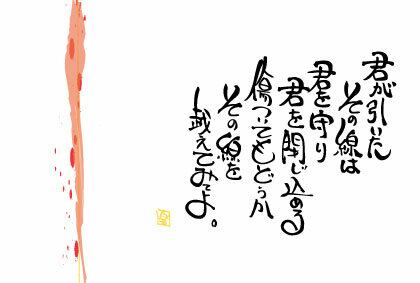 君が引いた
その線は
君を守り
君を閉じ込める
傷ついてもどうか
その線を
越えてみてよ。